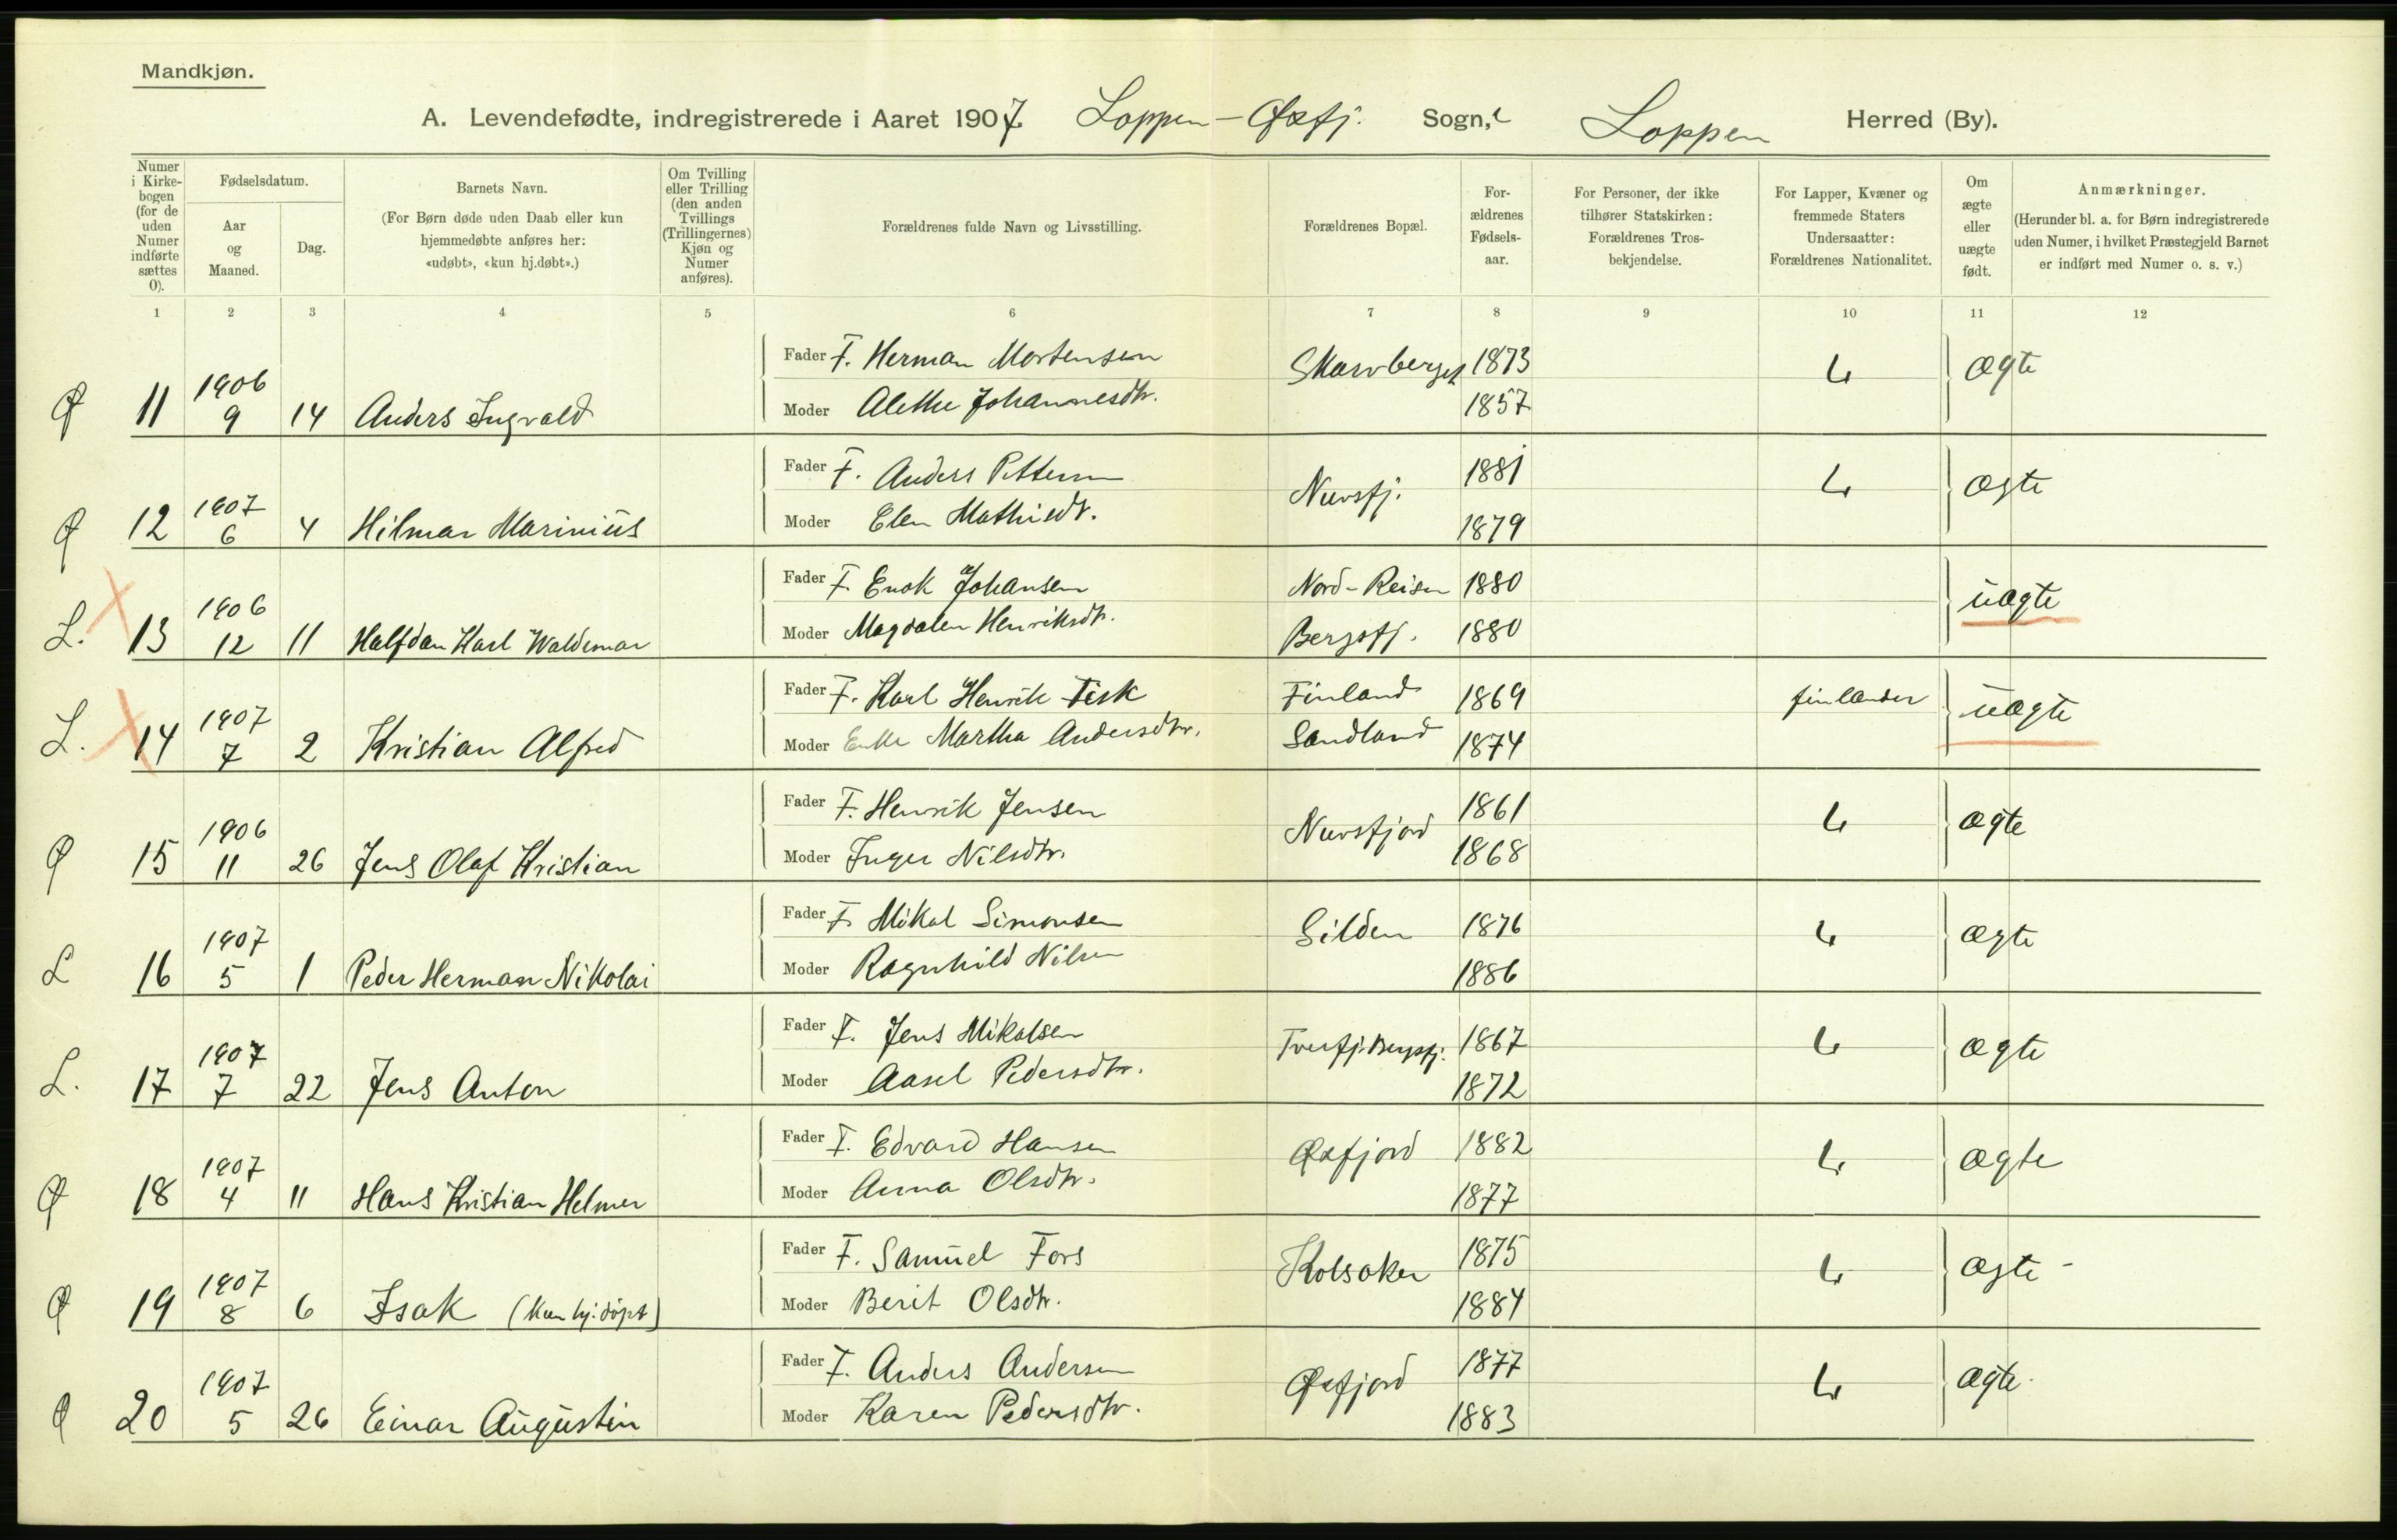 Mandkjøn.
A. Levendefødte, indregistrerede i Aaret 1907 Loppen - Øxfj. Sogn, Loppen Herred (By).
Numer i Kirkebogen (for de uden Numer indførte sættes 0).
Fødselsdatum.
Aar og Maaned.
Dag.
Barnets Navn.
(For Børn døde uden Daab eller kun hjemmedøbte anføres her: «udøbt», «kun hj.døbt».)
Om Tvilling eller Trilling (den anden Tvillings (Trillingernes) Kjøn og Numer anføres).
Forældrenes fulde Navn og Livsstilling.
Forældrenes Bopæl.
Forældrenes Fødselsaar.
For Personer, der ikke tilhører Statskirken: Forældrenes Trosbekjendelse.
For Lapper, Kvæner og fremmede Staters Undersaatter: Forældrenes Nationalitet.
Om ægte eller uægte født.
Anmærkninger.
(Herunder bl. a. for Børn indregistrerede uden Numer, i hvilket Præstegjeld Barnet er indført med Numer o. s. v.)
1 2 3 4 5 6 7 8 9 10 11 12
Fader F. Herman Mortensen 1873
Ø 11 1906 9 14 Anders Ingvald Moder Alethe Johannesdtr. 1857 ægte
Fader F. Anders Nuvsfj. 1881
Ø 12 1907 6 4 Hilmar Marinius Moder Elen Mathisdt. 1879 ægte
Fader F. Enok Johansen Nord-Reisen 1880
L. 13 1906 12 11 Halfdan Karl Waldemar Moder Magdalen Henriksdtr. Bergsfj. 1880 uægte
Fader F. Karl Henrik Fisk Finland 1869 finlænder
L. 14 1907 7 2 Kristian Alfred Moder Enke Martha Andersdtr. Sandland 1874 uægte
Fader F. Henrik Jensen Nuvsfjord 1861
Ø 15 1906 11 26 Jens Olaf Kristian Moder Inger Nilsdtr. 1868 ægte
Fader F. Mikal Simonsen Silden 1876
L 16 1907 5 1 Peder Herman Nikolai Moder Ragnhild Nilsen 1886 ægte
Fader F. Jens Mikalsen Tverfj. Bergsfj. 1867
L. 17 1907 7 22 Jens Anton Moder Aasel Pedersdtr. 1872 ægte
Fader F. Edvard Hansen Øxfjord 1882
Ø 18 1907 4 11 Hans Kristian Helmer Moder Anna Olsdtr. 1877 ægte
Fader F. Samuel Fors Kolsaker 1875
Ø 19 1907 8 6 Isak (kun hj. döpt) Moder Berit Olsdtr. 1884 ægte
Fader F. Anders Andersen Øxfjord 1877
Ø 20 1907 5 26 Einar Augustin Moder Karen Pedersdtr. 1883 ægte